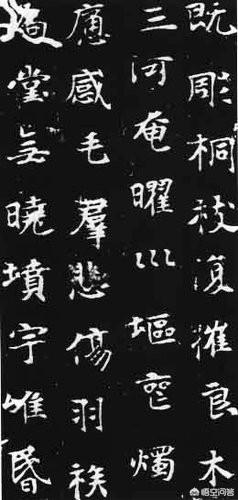 既彫桐枝復摧良木
三河奄曜巛塸喪燭
痛感毛羣悲傷羽族
扃堂無曉墳宇唯昏
悟空问答